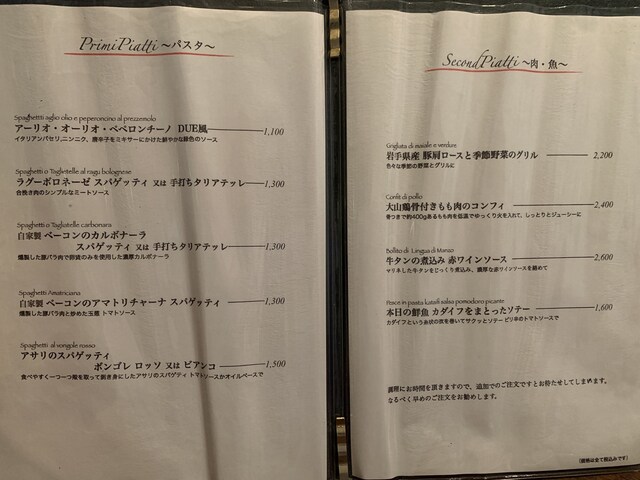 Primi Piatti ～パスタ～
Spaghetti aglio olio e peperoncino al prezzemolo
アーリオ・オーリオ・ペペロンチーノ DUE風 1,100
イタリアンパセリ,ニンニク、唐辛子をミキサーにかけた鮮やかな緑色のソース
Spaghetti o Taglitelle al ragu bolognese
ラグーボロネーゼ スパゲッティ 又は 手打ちタリアテッレ 1,300
合挽き肉のシンプルなミートソース
Spaghetti o Tagliatelle carbonara
自家製 ベーコンのカルボナーラ
スパゲッティ 又は 手打ちタリアテッレ 1,300
燻製した豚バラ肉で卵黄のみを使用した濃厚カルボナーラ
Spaghetti Amatriciana
自家製 ベーコンのアマトリチャーナ スパゲッティ 1,300
燻製した豚バラ肉と炒めた玉葱 トマトソース
Spaghetti al vongole rosso
アサリのスパゲッティ
ボンゴレ ロッソ 又は ビアンコ 1,500
食べやすく一つ一つ殻を取って剥き身にしたアサリのスパゲッティ トマトソースかオイルベースで
Second Piatti ～肉・魚～
Grigliata di maiale e verdure
岩手県産 豚肩ロースと季節野菜のグリル 2,200
色々な季節の野菜とグリルに
Confit di pollo
大山鶏骨付きもも肉のコンフィ 2,400
骨つきで約400gあるもも肉を低温でゆっくり火を入れて、しっとりとジューシーに
Bollito di Lingua di Manzo
牛タンの煮込み 赤ワインソース 2,600
マリネした牛タンをじっくり煮込み、濃厚な赤ワインソースを絡めて
Pesce in pasta kataifi salsa pomodoro picante
本日の鮮魚 カダイフをまとったソテー 1,600
カダイフという糸状の衣を巻いてサクッとソテー ピリ辛のトマトソースで
調理にお時間を頂きますので、追加でのご注文ですとお待たせしてしまいます。
なるべく早めのご注文をお勧めします。
(価格は全て税込みです)